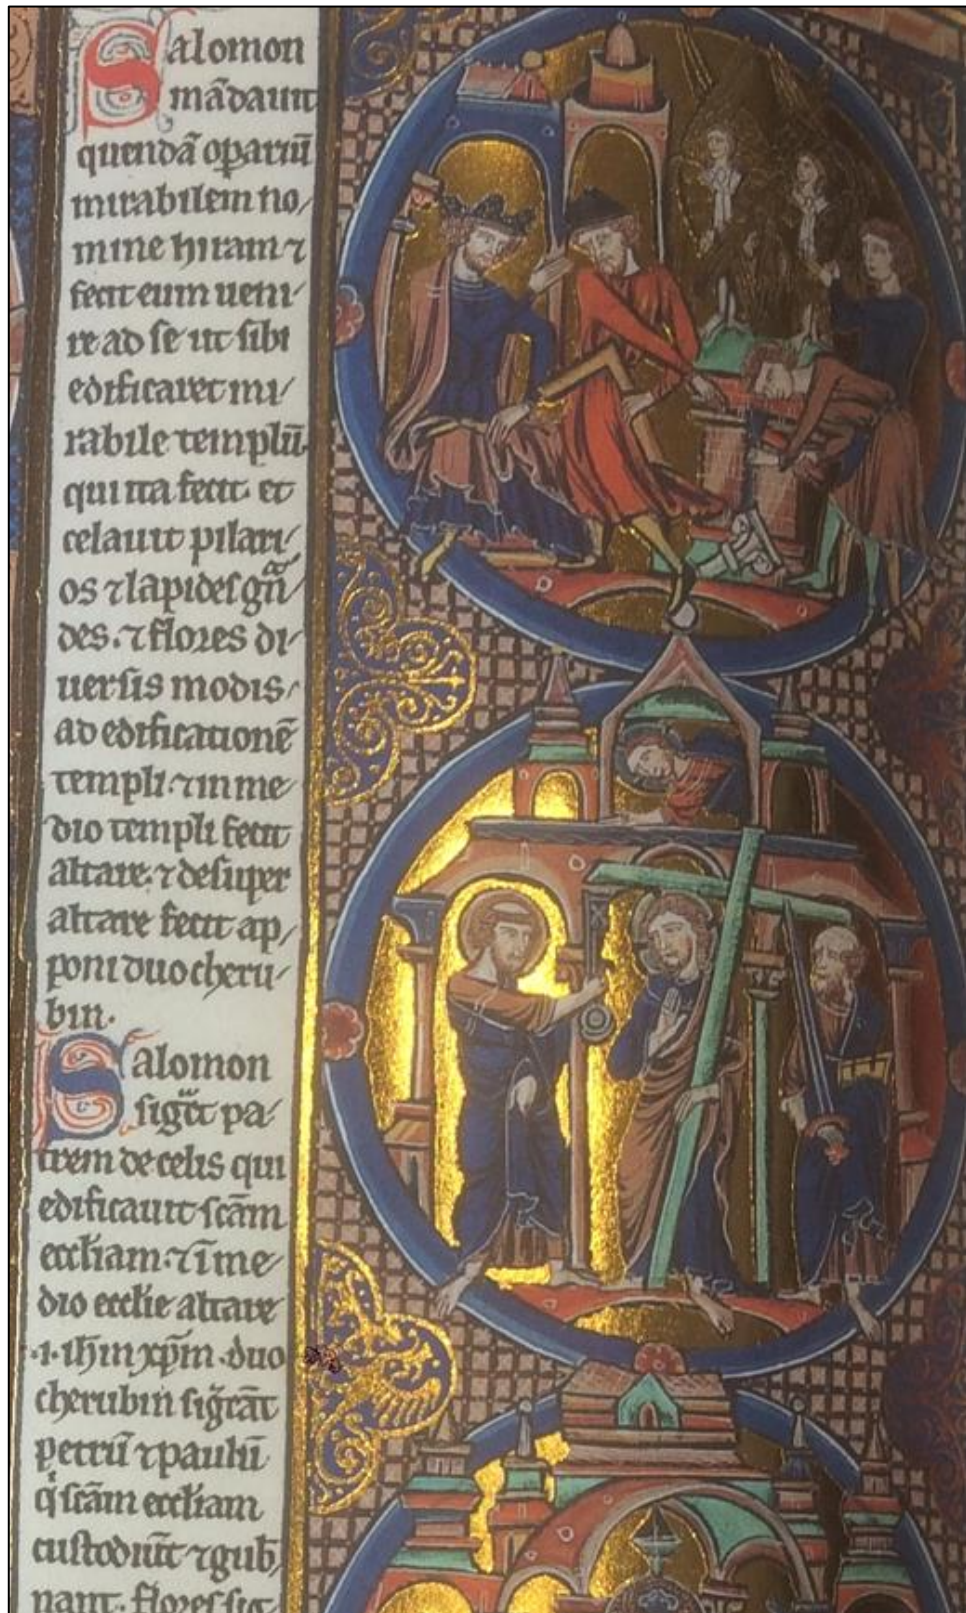 Salomon
mādauit
quendā opariū
mirabilem no/
mine hiram ⁊
fecit eum ueni/
re ad se ut sibi
edificaret mi/
rabile templū
qui ita fecit. et
celauit pilari/
os ⁊ lapides gn̄/
des. ⁊ flores di/
uersis modis/
ad edificationē
templi. ⁊ in me/
dio templi fecit
altare. ⁊ desuper
altare fecit ap/
poni duo cheru/
bin.
Salomon
sigc̄t pa/
trem de celis qui
edificauit scām
eccl̄iam. ⁊ ī me/
dio eccl̄ie altare
.i. ih̄m xp̄m. duo
cherubin siḡcāt
petrū ⁊ paulū
q̇ scām eccl̄iam
custodiūt ⁊ gub̄/
nant. flores sig